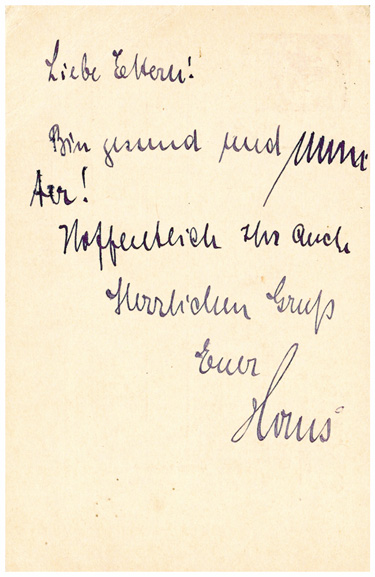 Liebe Eltern!
Bin gesund und mun
ter!
Hoffentlich Ihr auch
Herzlichen Gruß
Euer
Hans